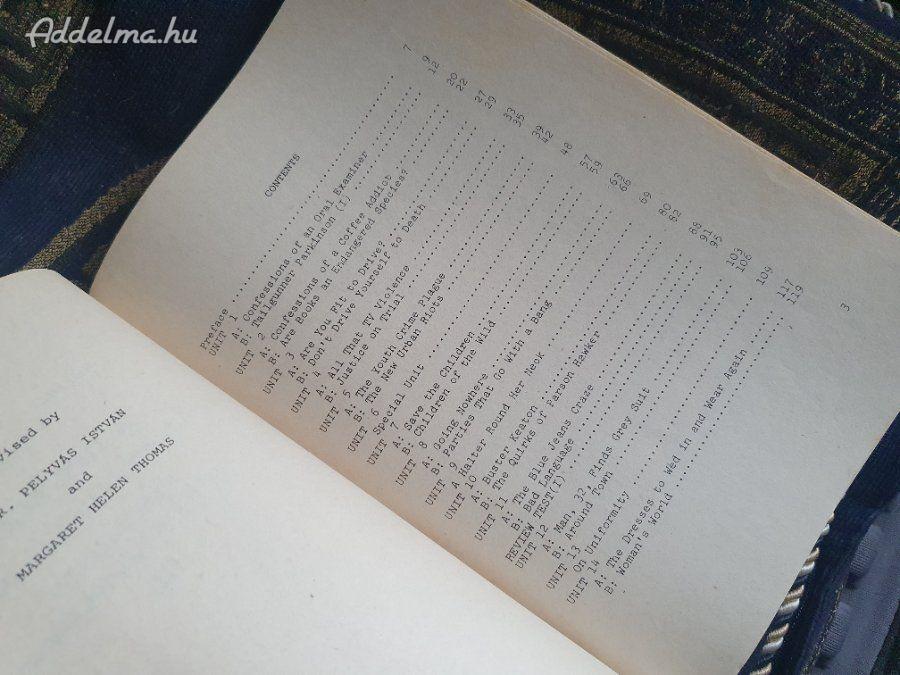 Addelma.hu
vised by
R. PELYVÁS ISTVÁN
and
MARGARET HELEN THOMAS
CONTENTS
Preface ........ 7
UNIT 1
A: Confessions of an Oral Examiner ........ 9
B: Tailgunner Parkinson (I) ........ 12
UNIT 2
A: Confessions of a Coffee Addict ........ 20
B: Are Books an Endangered Species? ........ 22
UNIT 3
A: Are You Fit to Drive? ........ 27
B: Don't Drive Yourself to Death ........ 29
UNIT 4
A: All That TV Violence ........ 33
B: Justice on Trial ........ 35
UNIT 5
A: The Youth Crime Plague ........ 39
B: The New Urban Riots ........ 42
UNIT 6
Special Unit ........ 48
UNIT 7
A: Save the Children ........ 57
B: Children of the Wild ........ 59
UNIT 8
A: Going Nowhere ........ 63
B: Parties That Go With a Bang ........ 66
UNIT 9
A Halter Round Her Nek ........ 69
UNIT 10
A: Buster Keaton ........ 80
B: The Quirks of Parson Hawker ........ 82
UNIT 11
A: The Blue Jeans Craze ........ 89
B: Bad Language ........ 91
REVIEW TEST(I) ........ 95
UNIT 12
A: Man, 32, Finds Grey Suit ........ 103
B: Around Town ........ 106
UNIT 13
On Uniformity ........ 109
UNIT 14
A: The Dresses to Wed in and Wear Again ........ 117
B: Woman's World ........ 119
3